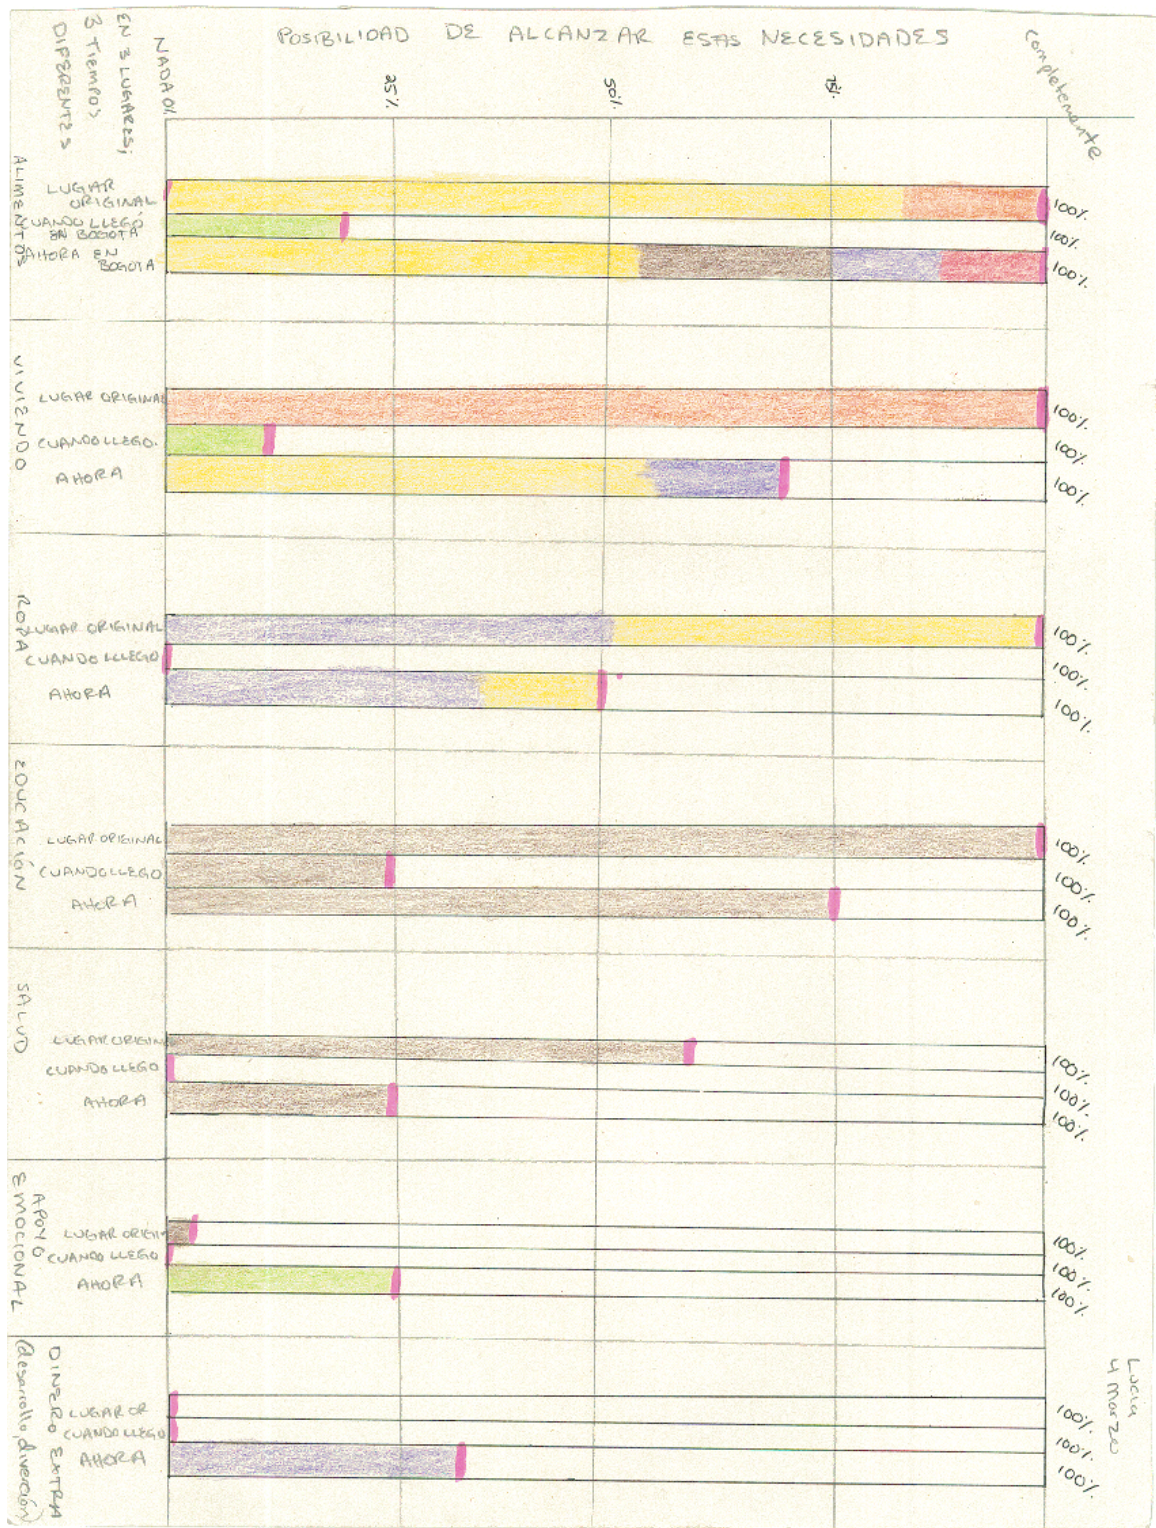 POSIBILIDAD DE ALCANZAR ESTAS NECESIDADES
EN 3 LUGARES;
3 TIEMPOS
DIFERENTES
NADA 0%
25%
50%
75%
completemante
ALIMENTOS
LUGAR
ORIGINAL
100%
CUANDO LLEGÓ
EN BOGOTA
100%
AHORA EN
BOGOTA
100%
VIVIENDO
LUGAR ORIGINAL
100%
CUANDO LLEGO.
100%
AHORA
100%
ROPA
LUGAR ORIGINAL
100%
CUANDO LLLEGO
100%
AHORA
100%
EDUCACIÓN
LUGAR ORIGINAL
100%
CUANDO LLEGO
100%
AHORA
100%
SALUD
LUGAR ORIGIN
100%
CUANDO LLEGO
100%
AHORA
100%
APOYO
EMOCIONAL
LUGAR ORIGIN
100%
CUANDO LLEGO
100%
AHORA
100%
DINERO EXTRA
(desarrollo, diverción)
LUGAR OR
100%
CUANDO LLEGO
100%
AHORA
100%
Lucia
4 marzo